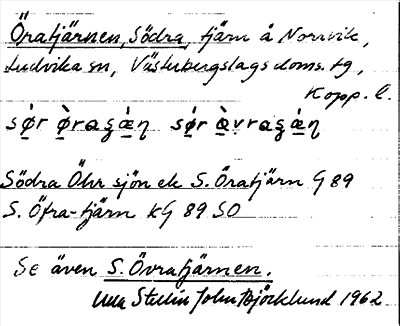 Öratjärnen, Södra, tjärn å Norrvik,
Ludvika sn, Västerbergslags doms. tg,
Kopp. l.
sø̀r ø̀ragǽn sø̀r ǫ̀vragǽn
Södra Öhr sjön ek S. Öratjärn G 89
S. Öfra-tjärn kG 89 SO
Se även S. Övratjärnen.
Stelin John Björcklund 1962